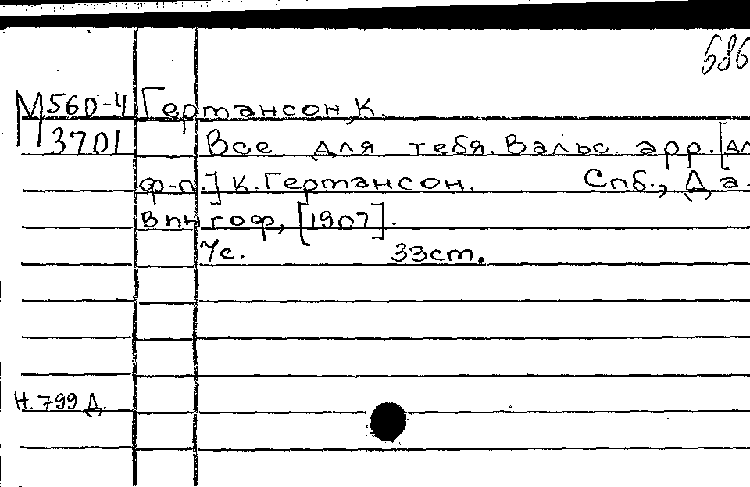 686
М560-4 Гертансон, К.
3701 Все для тебя. Вальс. арр. [дл
ф-п.] К. Гертансон. Спб., Да
впнгоф, [1907].
7с. 33ст.
Н.799 Д